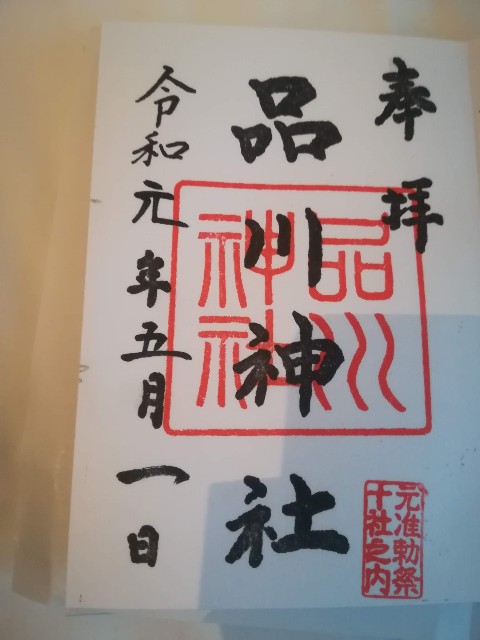 奉拝
品川神社
令和元年五月一日
品川
神社
元准勅祭
十社之内